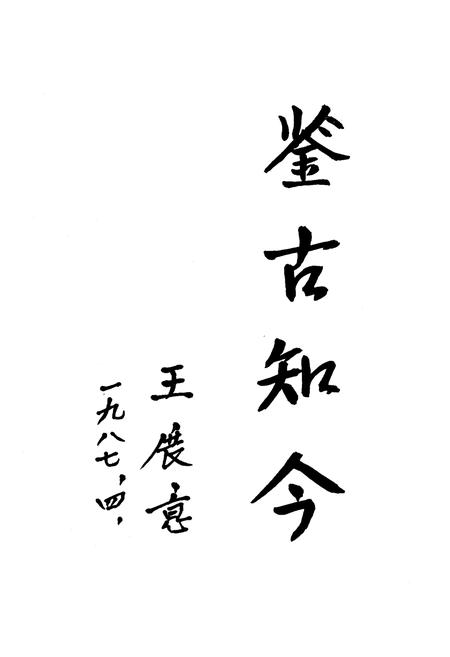 鉴古知今
王展意
一九八七,四,